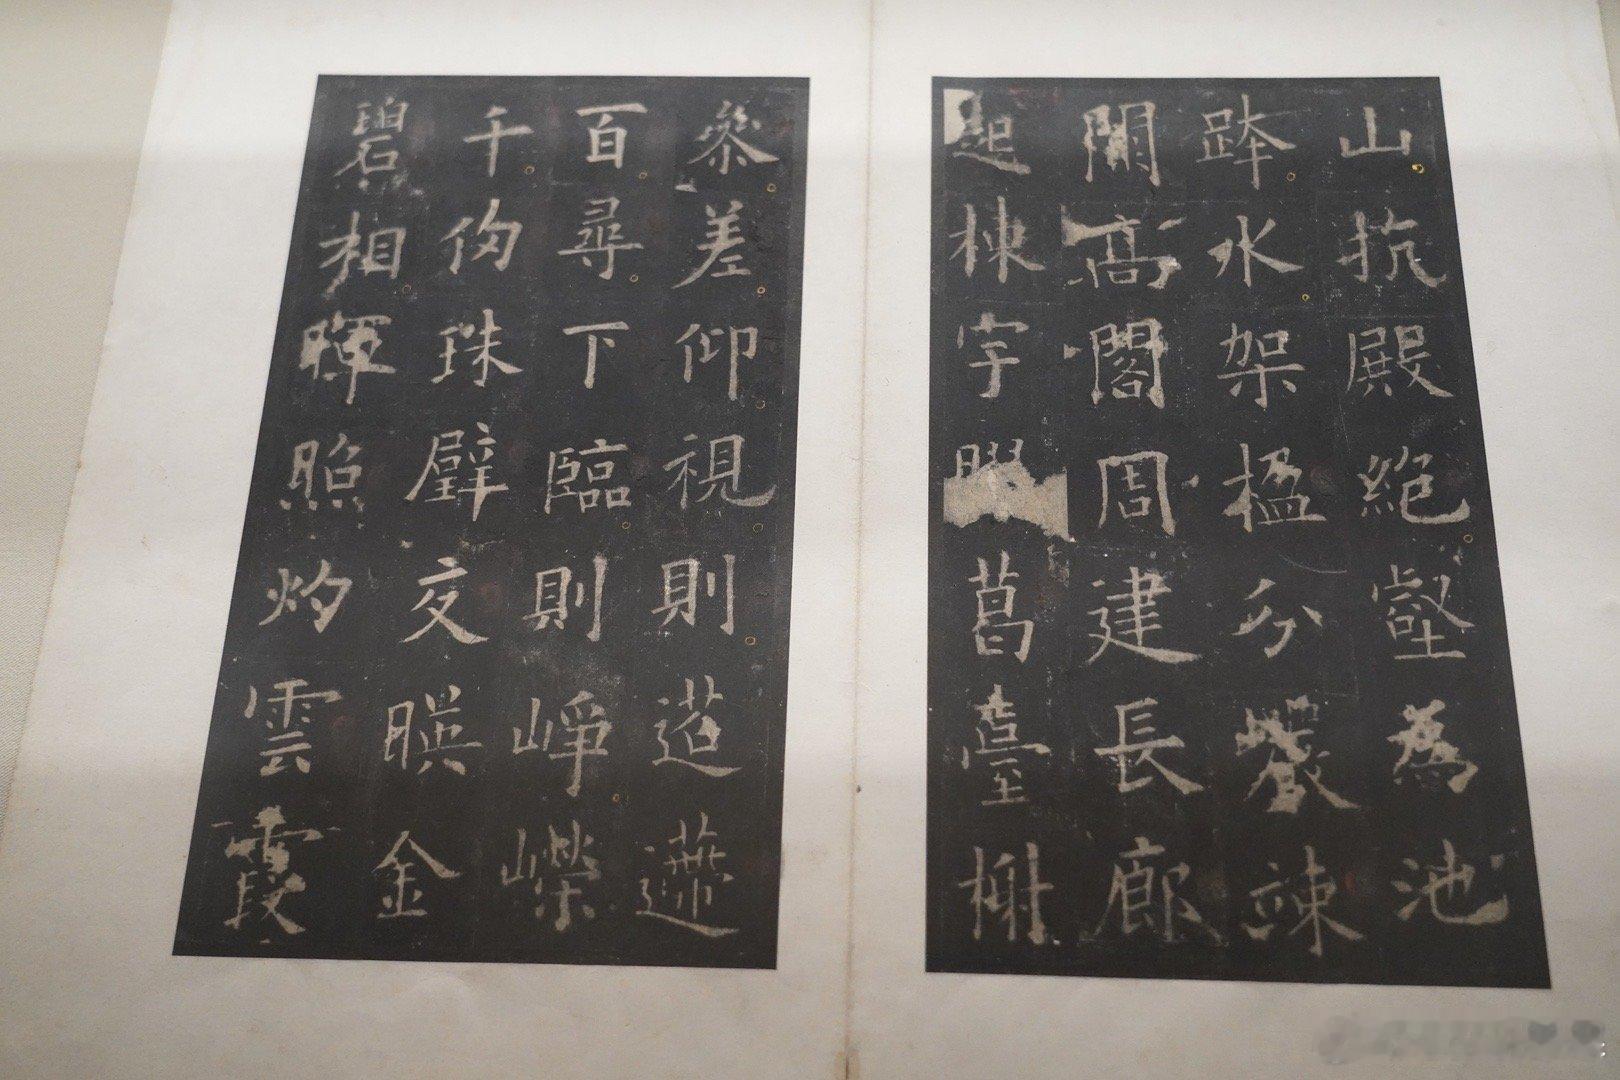 山抗殿絕壑爲池
跨水架楹分巖竦
闕高閣周建長廊
起棟宇膠葛臺榭
參差仰視則迢遰
百尋下臨則崢嶸
千仞珠璧交暎金
碧相暉照灼雲霞